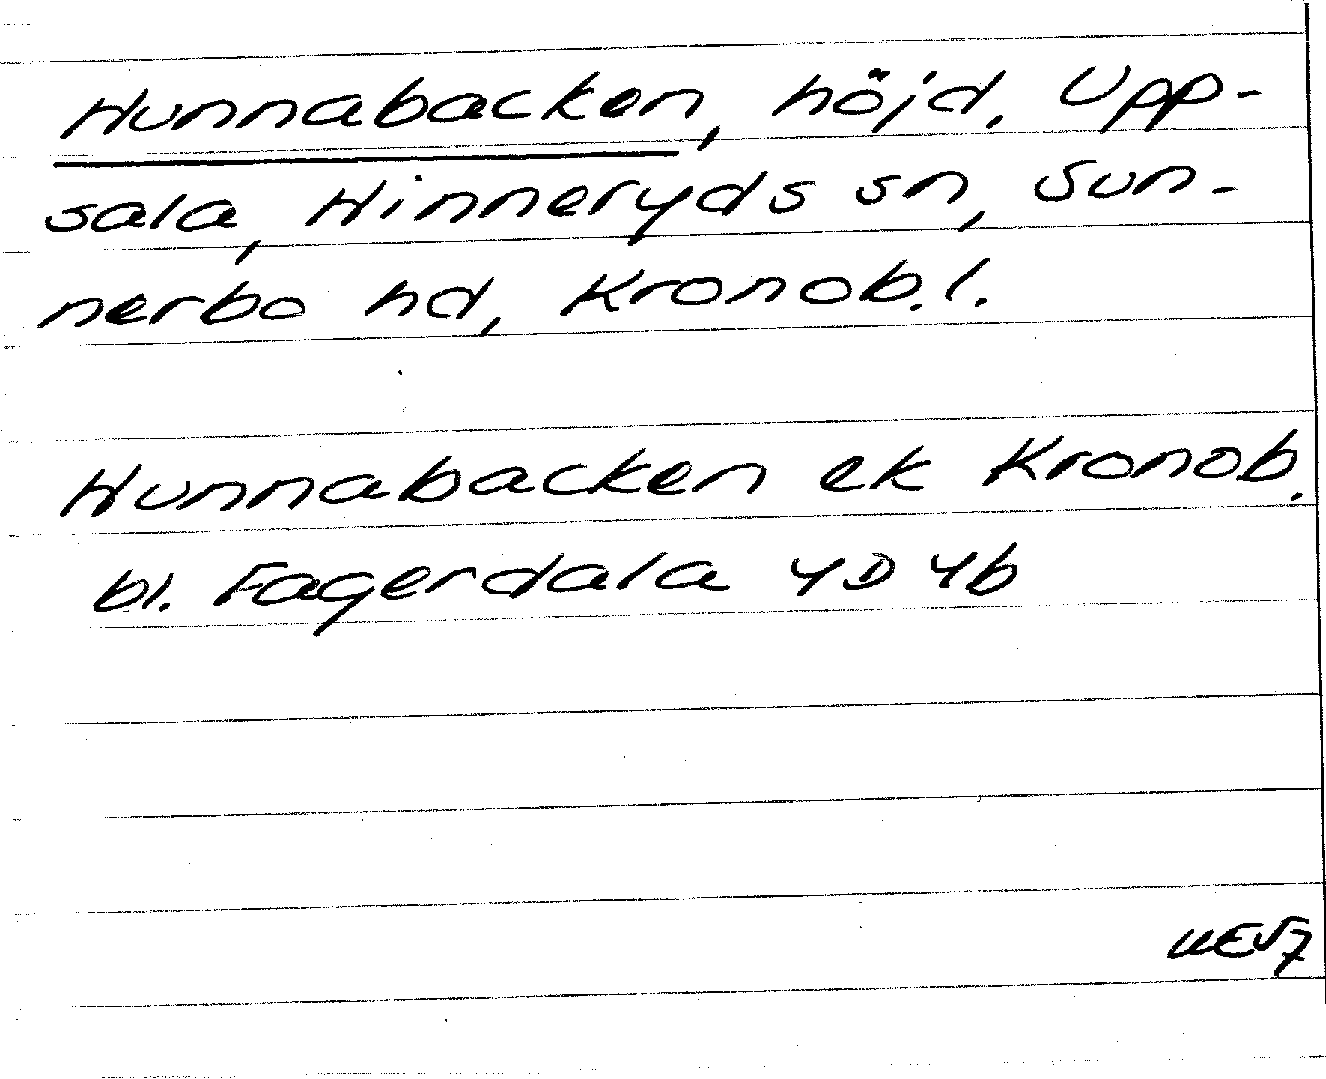 Hunnabacken, höjd. Upp-
sala, Hinneryds sn, Sun-
nerbo hd, Kronob. l.
Hunnabacken ek Kronob.
bl. Fagerdala 4D 4b